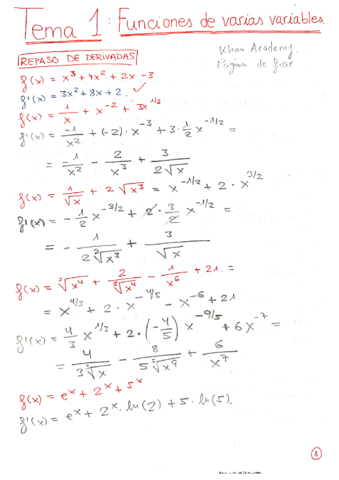 Tema 1: Funciones de varias variables.
Khan Academy.
Página de fiar
REPASO DE DERIVADAS
f(x) = x³ + 4x² + 2x - 3
f'(x) = 3x² + 8x + 2. ✓
f(x) = 1/x + x⁻² + 3x^(1/2)
f'(x) = -1/x² + (-2)·x⁻³ + 3·1/2 x^(-1/2) =
= -1/x² - 2/x³ + 3/(2√x)
f(x) = 1/√x + 2√x³ = x^(-1/2) + 2·x^(3/2)
f'(x) = -1/2 x^(-3/2) + 2·3/2 x^(-1/2) =
= -1/(2 ²√x³) + 3/√x
f(x) = ³√x⁴ + 2/⁵√x⁴ - 1/x⁶ + 21. =
= x^(4/3) + 2·x^(-4/5) - x⁻⁶ + 21
f'(x) = 4/3 x^(1/3) + 2·(-4/5) x^(-9/5) + 6x⁻⁷ =
= 4/(3 ³√x) - 8/(5 ⁵√x⁹) + 6/x⁷
f(x) = eˣ + 2ˣ + 5ˣ
f'(x) = eˣ + 2ˣ·ln(2) + 5·ln(5).
1